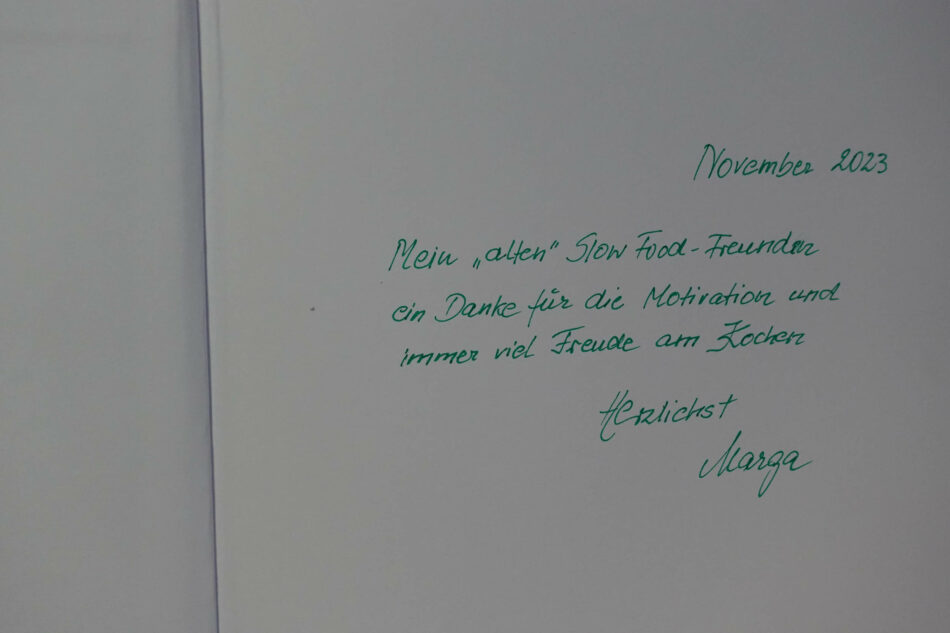 November 2023
Mein „alten" Slow Food-Freunden
ein Danke für die Motivation und
immer viel Freude am Kochen
Herzlichst
Marga